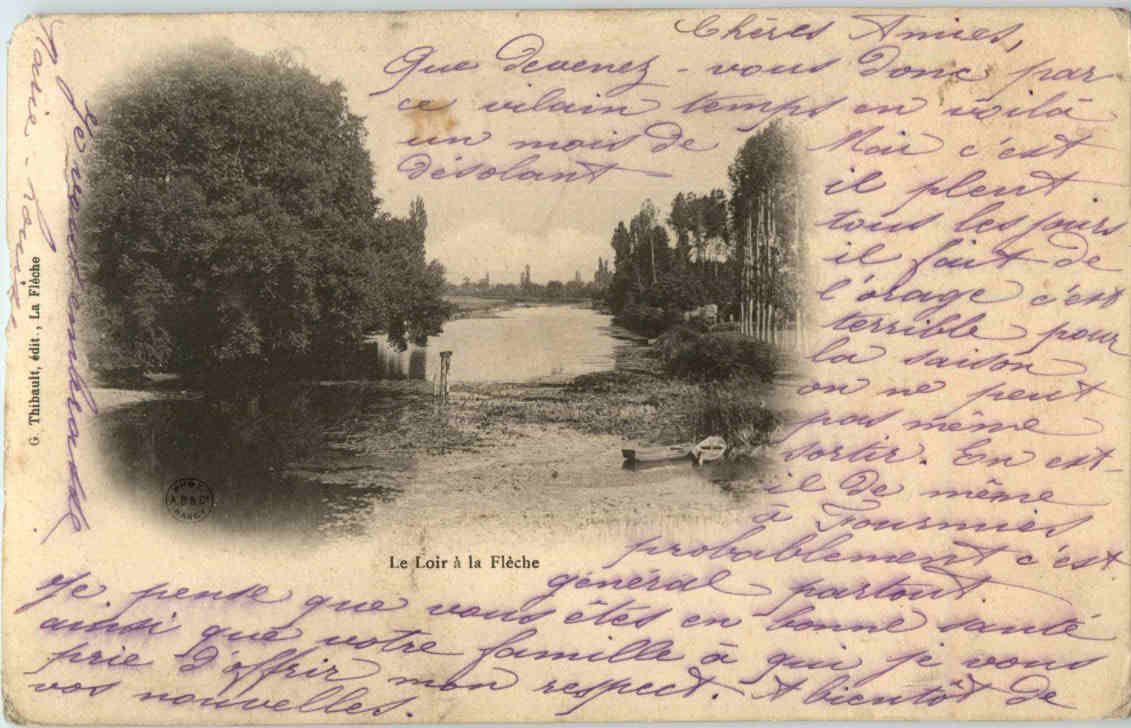 Chères Amies,
Que devenez-vous donc par
ce vilain temps en voilà
un mois de Mai c'est
désolant
il pleut
tous les jours
il fait de
l'orage c'est
terrible pour
la saison
on ne peut
pas même
sortir. En est-
il de même
à Fourmies
probablement c'est
général partout
Je pense que vous êtes en bonne santé
ainsi que votre famille à qui je vous
prie d'offrir mon respect. A bientôt de
vos nouvelles.
Je vous embrasse
Marie-Louise
G. Thibault, édit., La Flèche
PHOT
A.B & Cie
NANCY
Le Loir à la Flèche